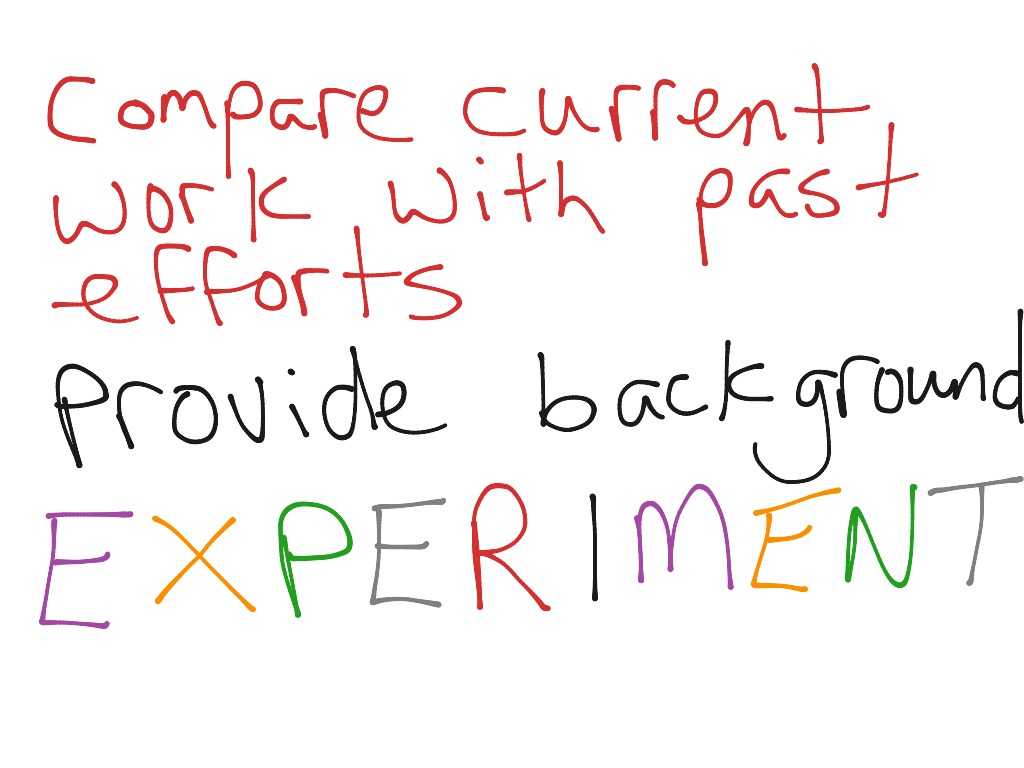 Compare current
work with past
efforts
Provide background
EXPERIMENT